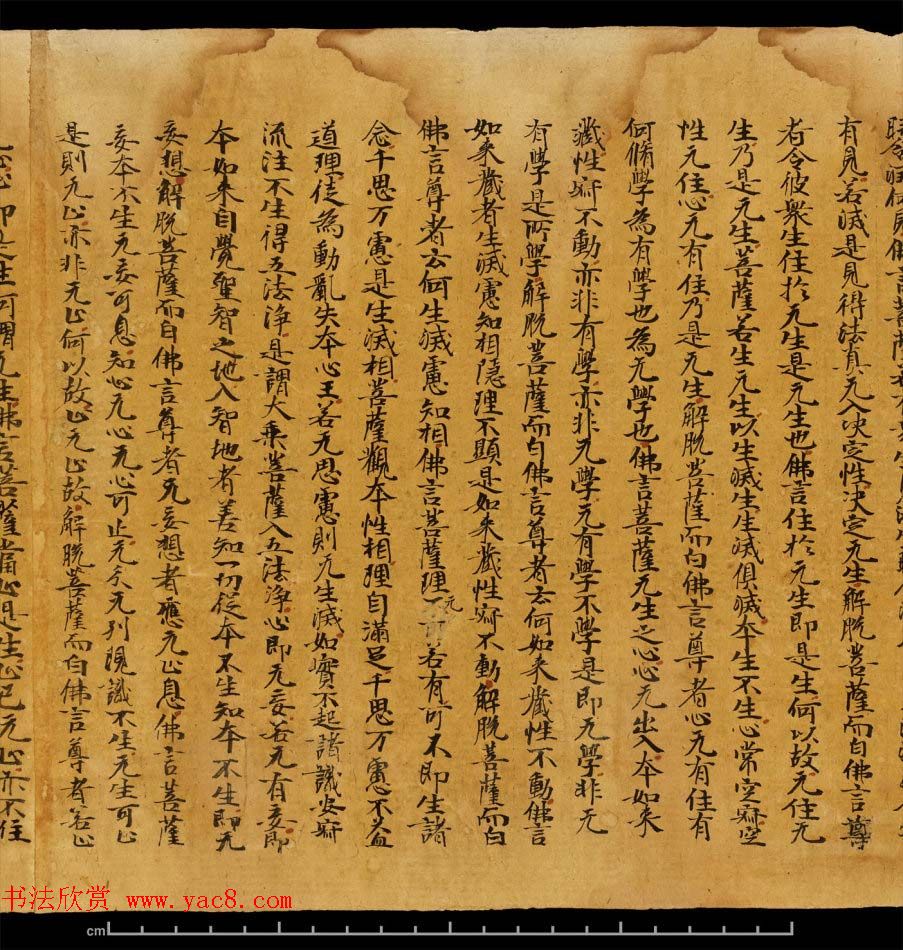 佛言菩薩
有見若滅是見得法真无入决定性决定无生解脱菩薩而白佛言尊
者令彼衆生住於无生是无生也佛言住於无生即是生何以故无住无
生乃是无生菩薩若生无生以生滅生生滅俱滅本生不生心常空寂空
性无住心无有住乃是无生解脱菩薩而白佛言尊者心无有住有
何脩學為有學也為无學也佛言菩薩无生之心心无出入本如来
藏性寂不動亦非有學亦非无學无有學不學是即无學非无
有學是所學解脱菩薩而白佛言尊者云何如来藏性不動佛言
如来藏者生滅慮知相隱理不顯是如来藏性寂不動解脱菩薩而白
佛言尊者云何生滅慮知相佛言菩薩理无可若有可不即生諸
念千思万慮是生滅相菩薩觀本性相理自滿足千思万慮不益
道理徒為動亂失本心王若无思慮則无生滅如實不起諸識安寂
流注不生得五法浄是謂大乘菩薩入五法浄心即无妄若无有妄即
本如来自覺聖智之地入智地者善知一切從本不生知本不生即无
妄想解脱菩薩而白佛言尊者无妄想者應无止息佛言菩薩
妄本不生无妄可息知心无心无心可止无分无别現識不生无生可止
是則无止亦非无止何以故止无止故解脱菩薩而白佛言尊者若止
无止止即是生何謂无生佛言菩薩當止是生止已无止亦不住
书法欣赏 www.yac8.com
cm